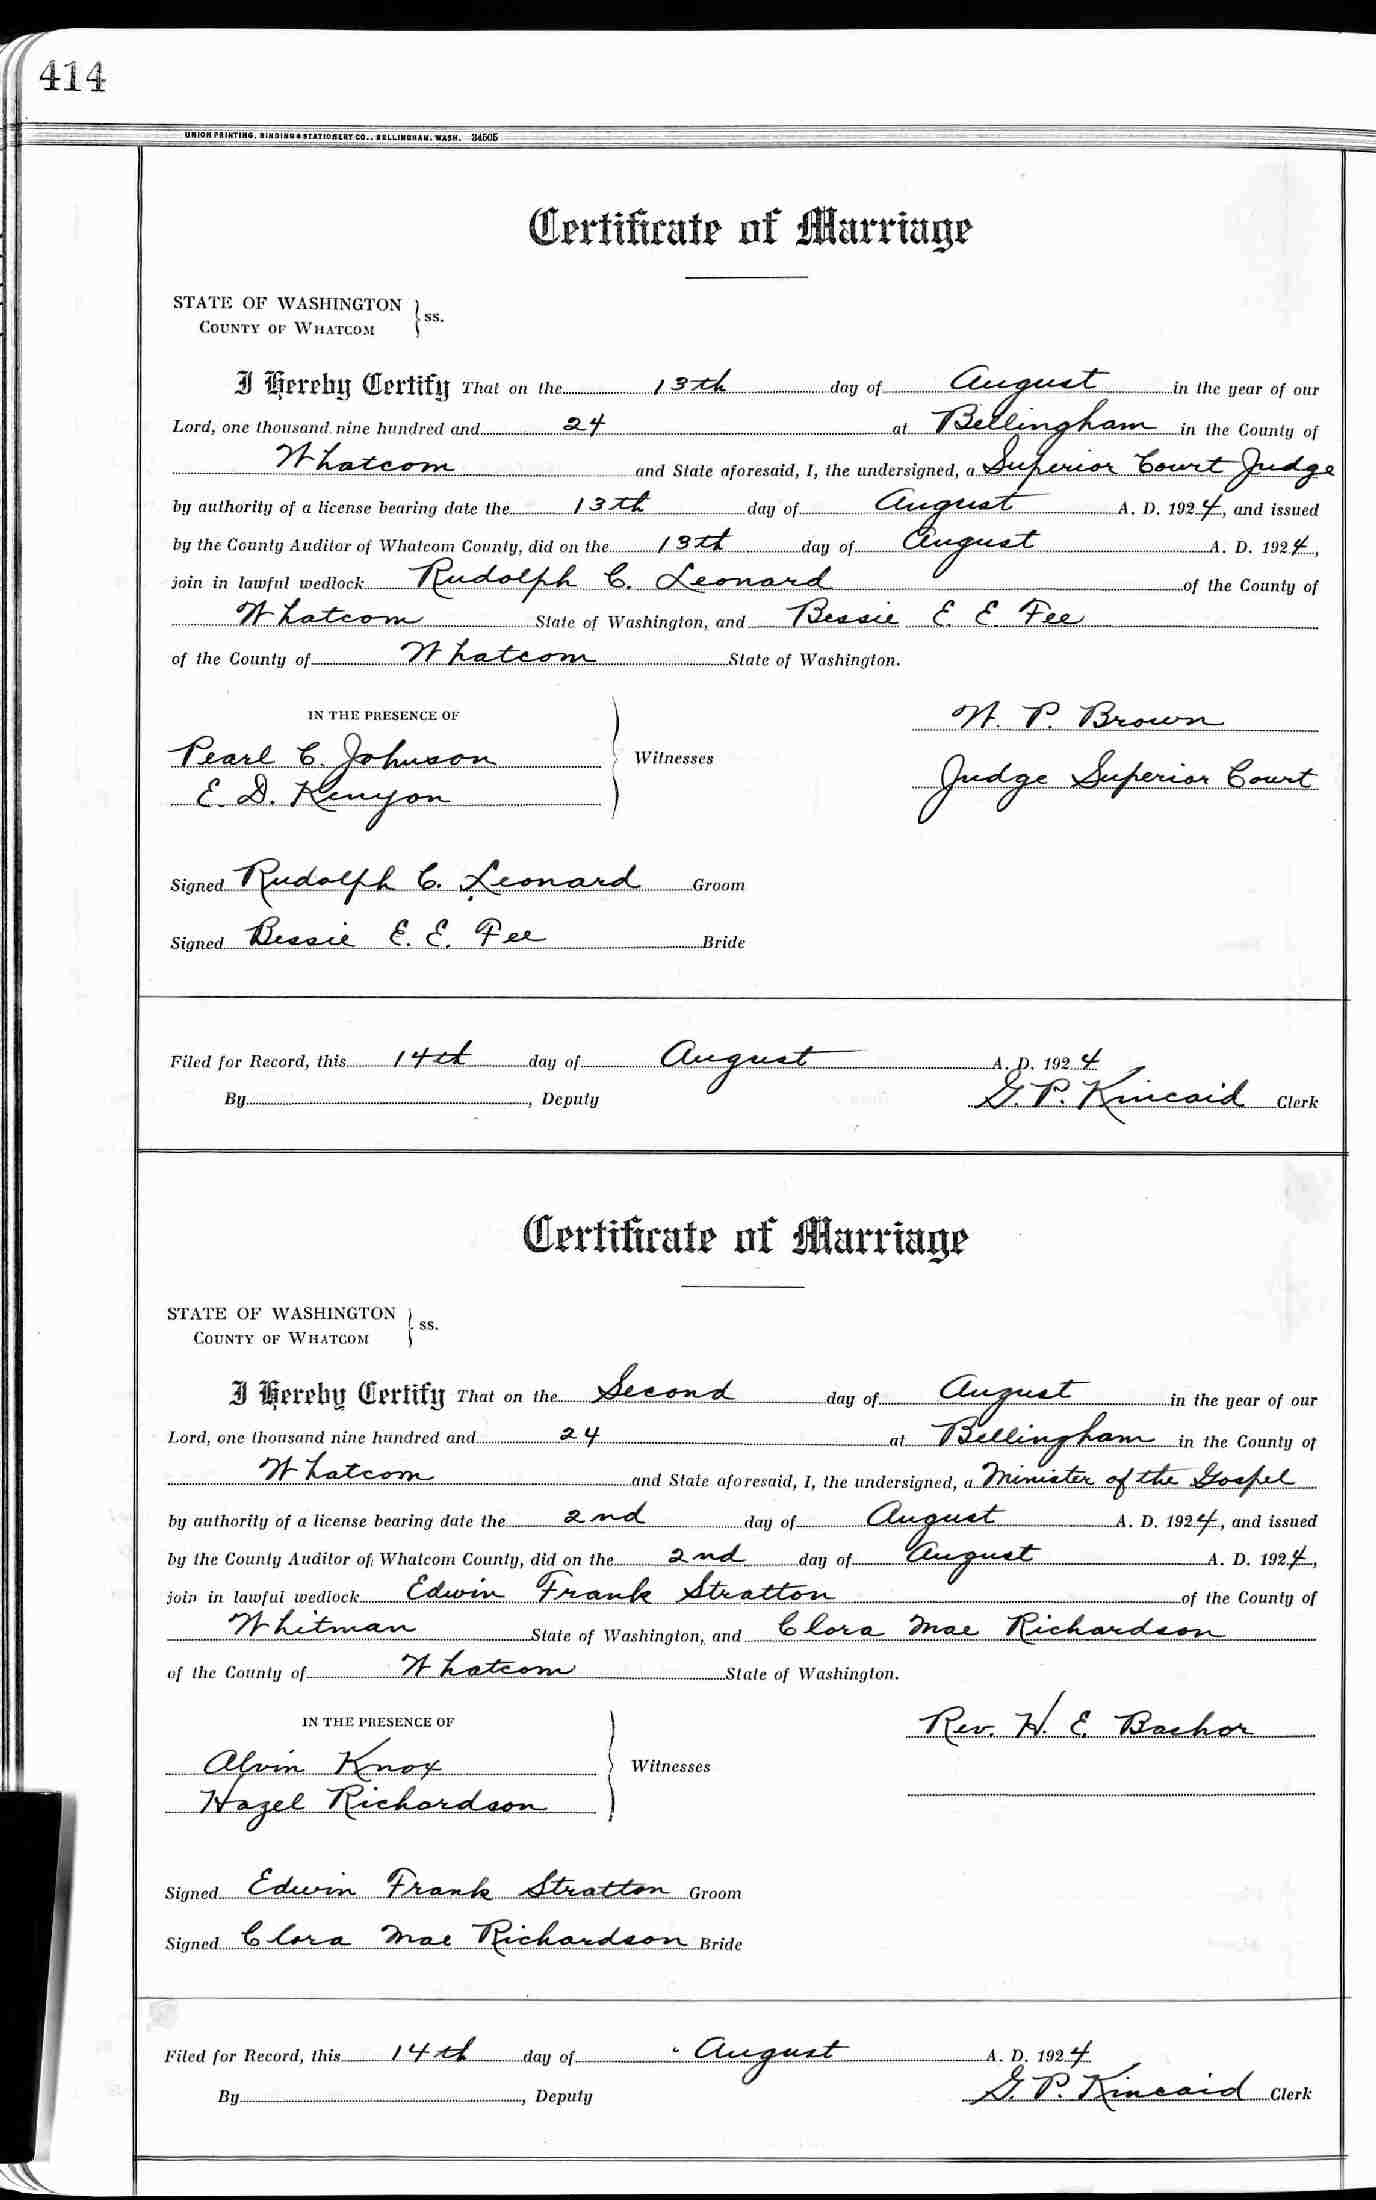 414
UNION PRINTING, BINDING & STATIONERY CO., BELLINGHAM, WASH. 34505
Certificate of Marriage
STATE OF WASHINGTON
COUNTY OF WHATCOM ss.
I Hereby Certify That on the 13th day of August in the year of our
Lord, one thousand nine hundred and 24 at Bellingham in the County of
Whatcom and State aforesaid, I, the undersigned, a Superior Court Judge
by authority of a license bearing date the 13th day of August A. D. 1924, and issued
by the County Auditor of Whatcom County, did on the 13th day of August A. D. 1924,
join in lawful wedlock Rudolph C. Leonard of the County of
Whatcom State of Washington, and Bessie E E Fee
of the County of Whatcom State of Washington.
IN THE PRESENCE OF
W. P. Brown
Pearl C. Johnson
Witnesses
Judge Superior Court
E. D. Kenyon
Signed Rudolph C. Leonard Groom
Signed Bessie E. E. Fee Bride
Filed for Record, this 14th day of August A. D. 1924
By , Deputy G. P. Kincaid Clerk
Certificate of Marriage
STATE OF WASHINGTON
COUNTY OF WHATCOM ss.
I Hereby Certify That on the Second day of August in the year of our
Lord, one thousand nine hundred and 24 at Bellingham in the County of
Whatcom and State aforesaid, I, the undersigned, a Minister of the Gospel
by authority of a license bearing date the 2nd day of August A. D. 1924, and issued
by the County Auditor of Whatcom County, did on the 2nd day of August A. D. 1924,
join in lawful wedlock Edwin Frank Stratton of the County of
Whitman State of Washington, and Clora Mae Richardson
of the County of Whatcom State of Washington.
IN THE PRESENCE OF
Rev. H. E. Bachor
Alvin Knox
Witnesses
Hazel Richardson
Signed Edwin Frank Stratton Groom
Signed Clora Mae Richardson Bride
Filed for Record, this 14th day of August A. D. 1924
By , Deputy G. P. Kincaid Clerk